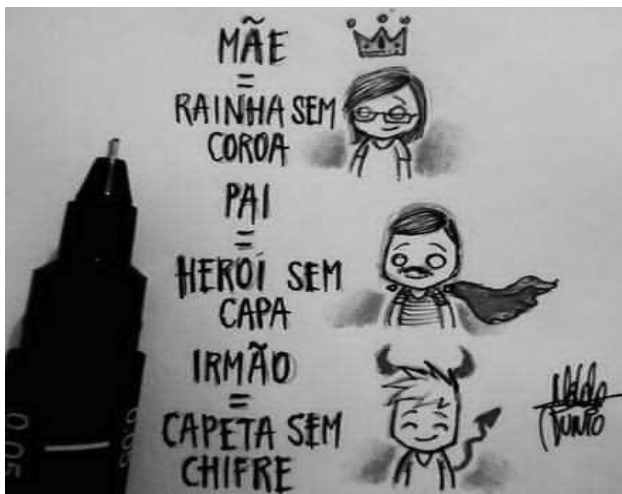 MÃE
=
RAINHA SEM
COROA
PAI
=
HEROÍ SEM
CAPA
IRMÃO
=
CAPETA SEM
CHIFRE
JUNIO
0.05
0.05